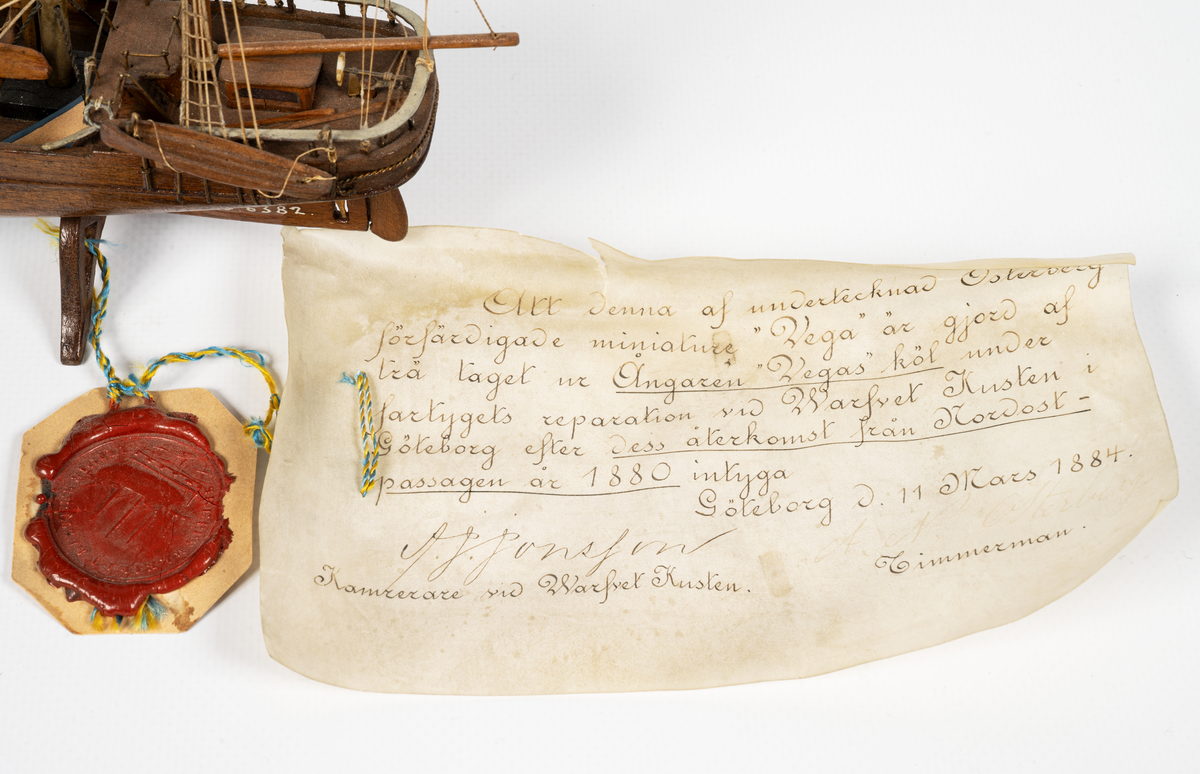 6382.
Att denna af undertecknad Österberg
förfärdigade miniature "Vega" är gjord af
trä taget ur Ångaren "Vegas" köl under
fartygets reparation vid Warfvet Kusten i
Göteborg efter dess återkomst från Nordost-
passagen år 1880 intyga
Göteborg d. 11 Mars 1884.
A J Jonsson
Kamrerare vid Warfvet Kusten.
Timmerman.